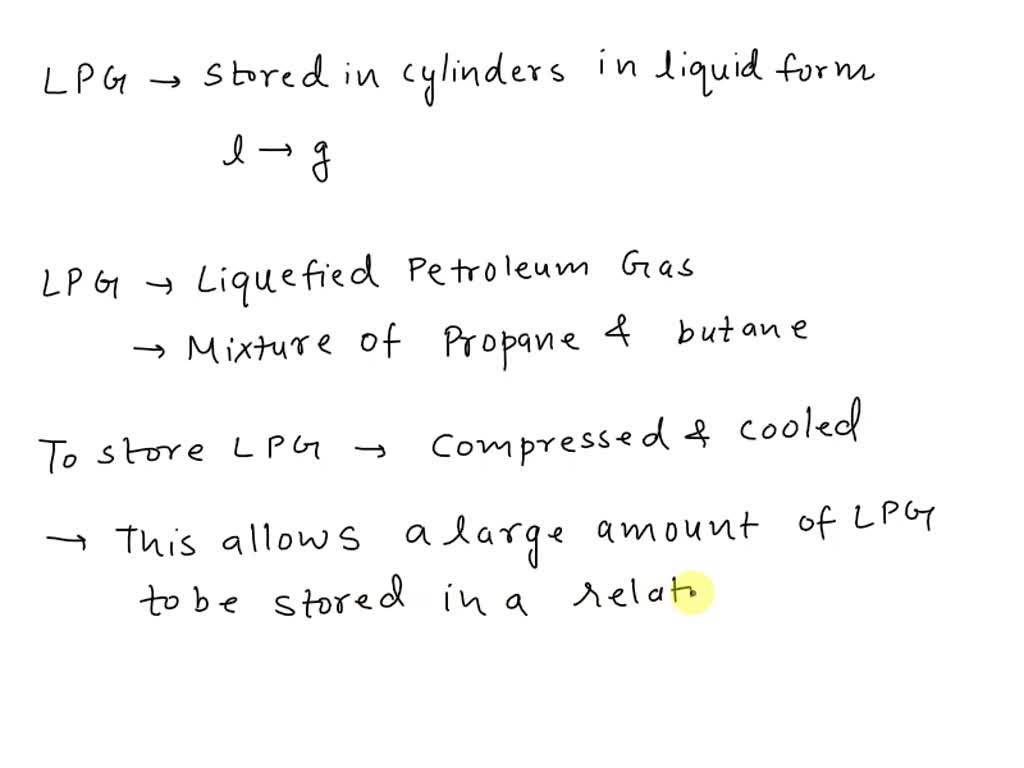 LPG → stored in cylinders in liquid form
l → g
LPG → Liquefied Petroleum Gas
→ Mixture of Propane & butane
To store LPG → compressed & cooled
→ This allows a large amount of LPG
to be stored in a relat